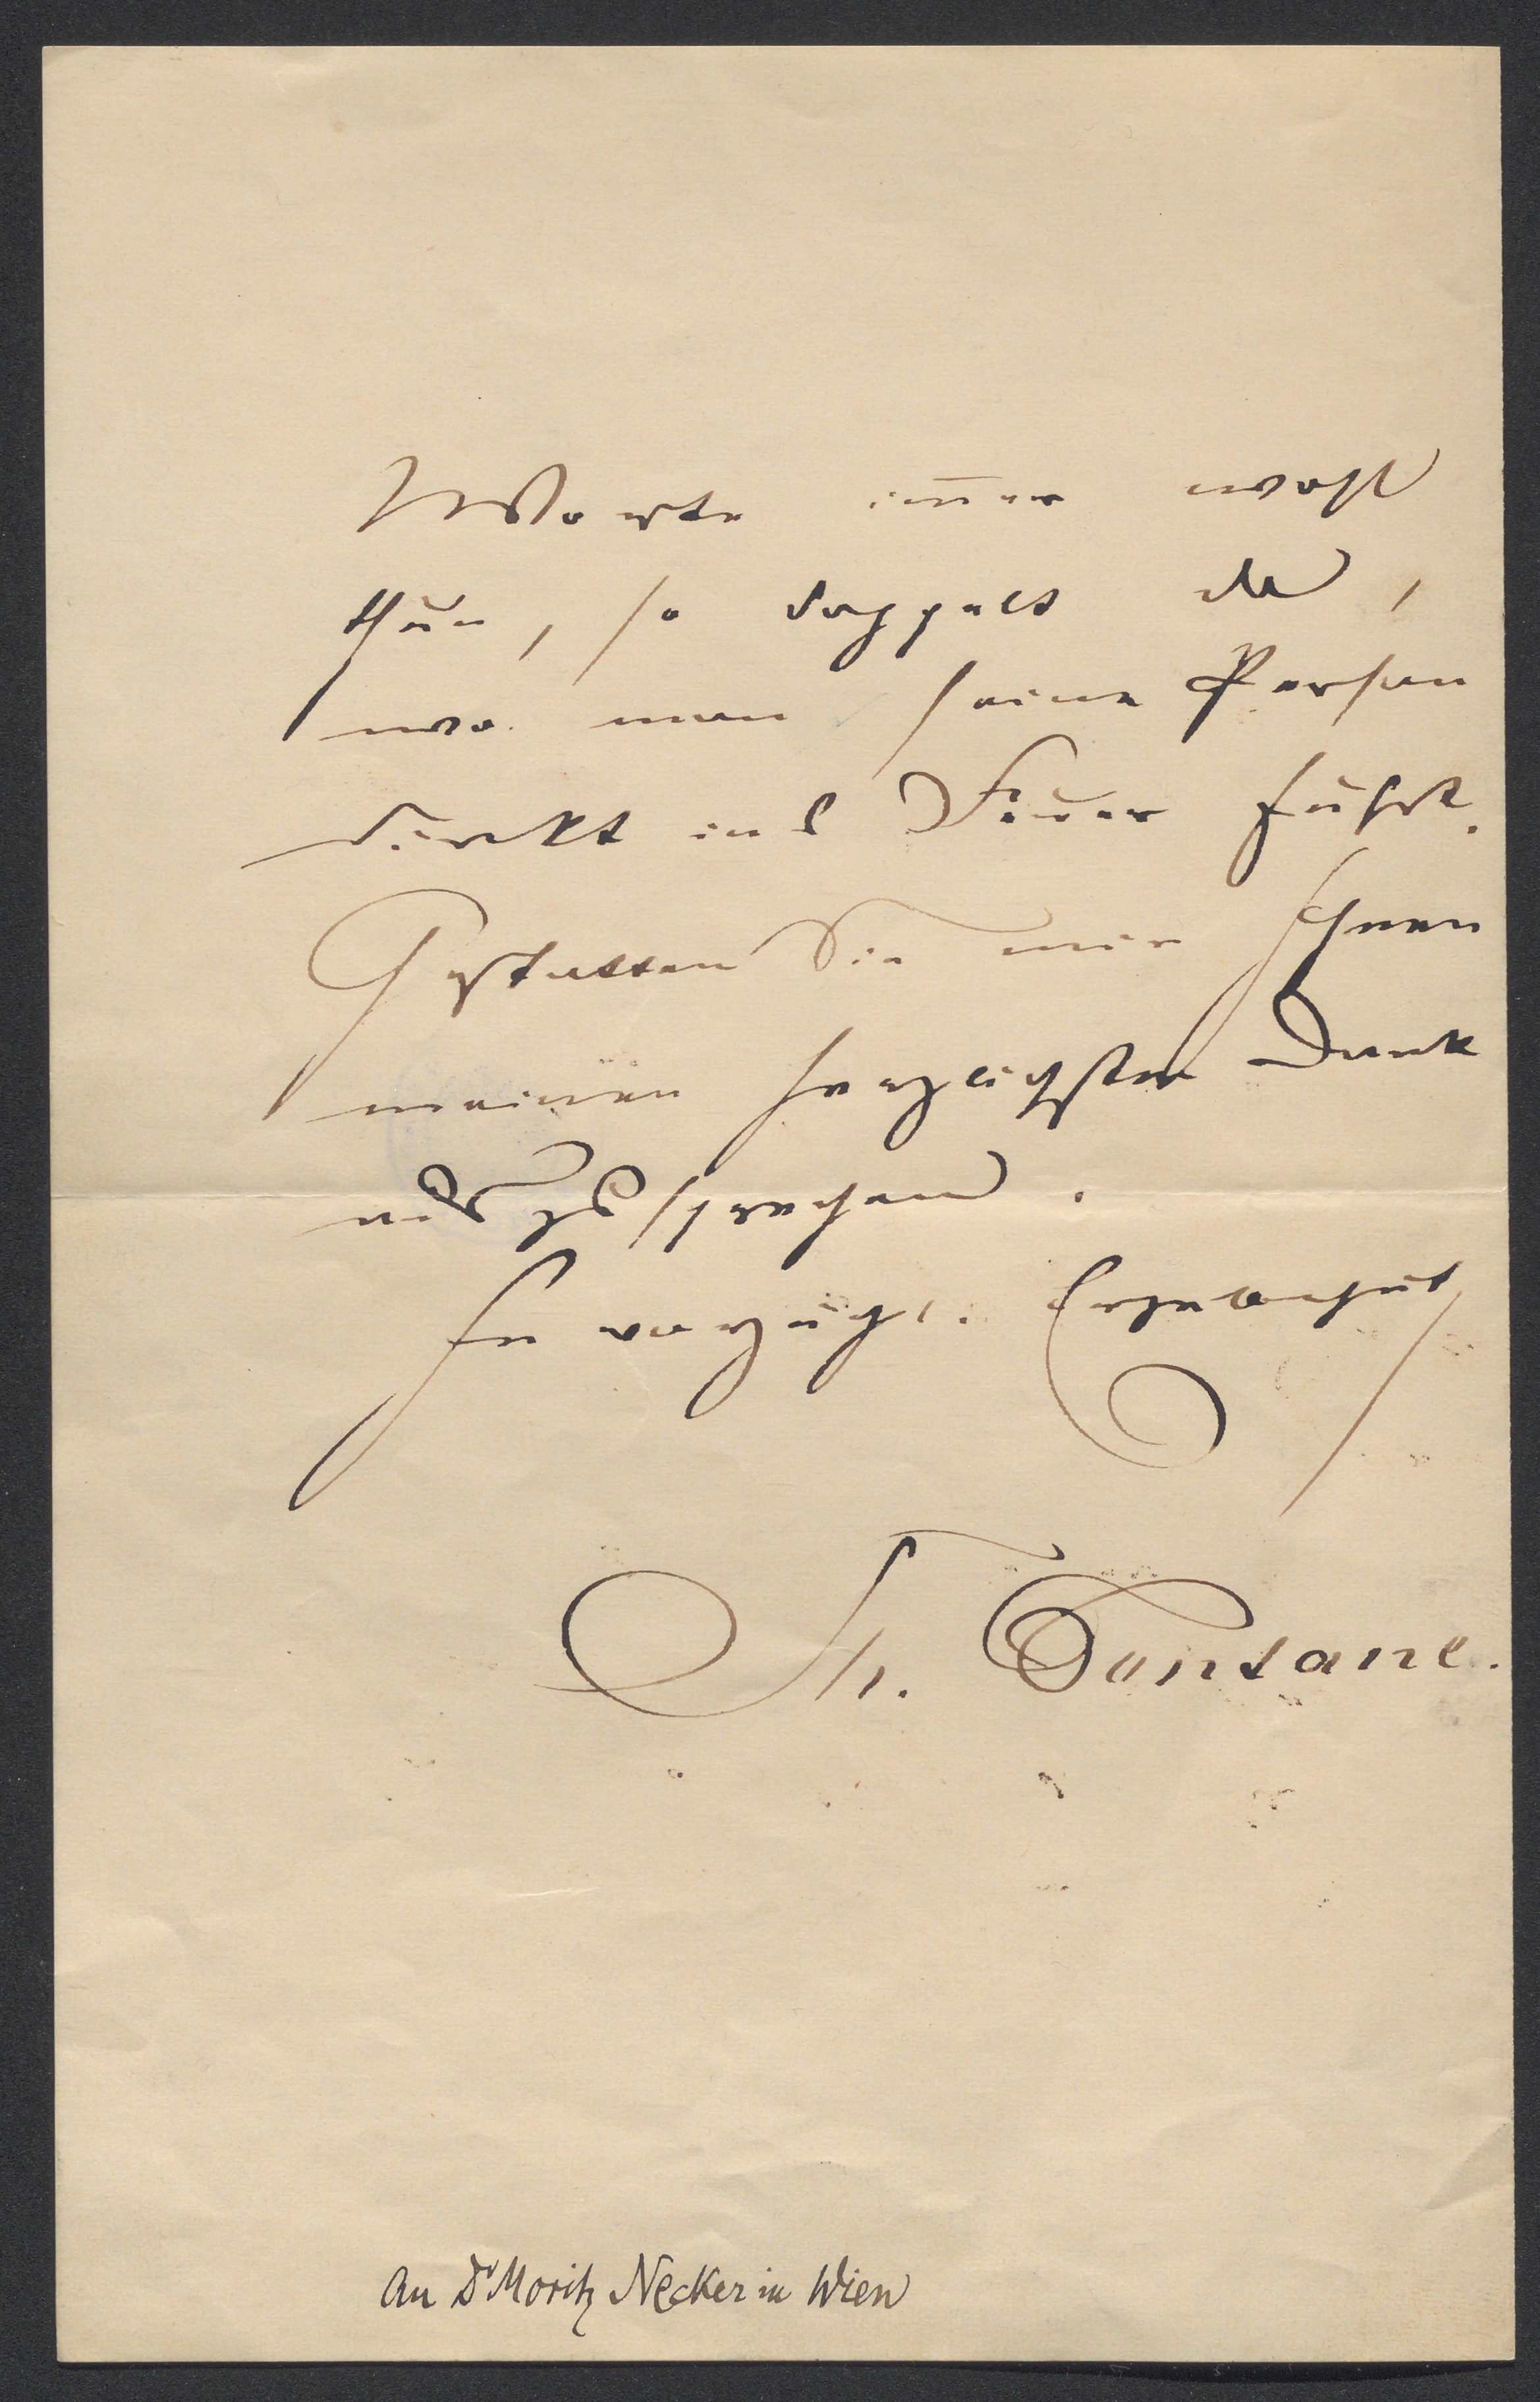 Worte im̅er wohl
thun, so doppelt da,
wo man seine Person
direkt ins Feuer führt.
Gestatten Sie mir Ihnen
meinen herzlichsten Dank
auszusprechen.
In vorzügl. Ergebenheit
Th. Fontane.
An Dr Moritz Necker in Wien